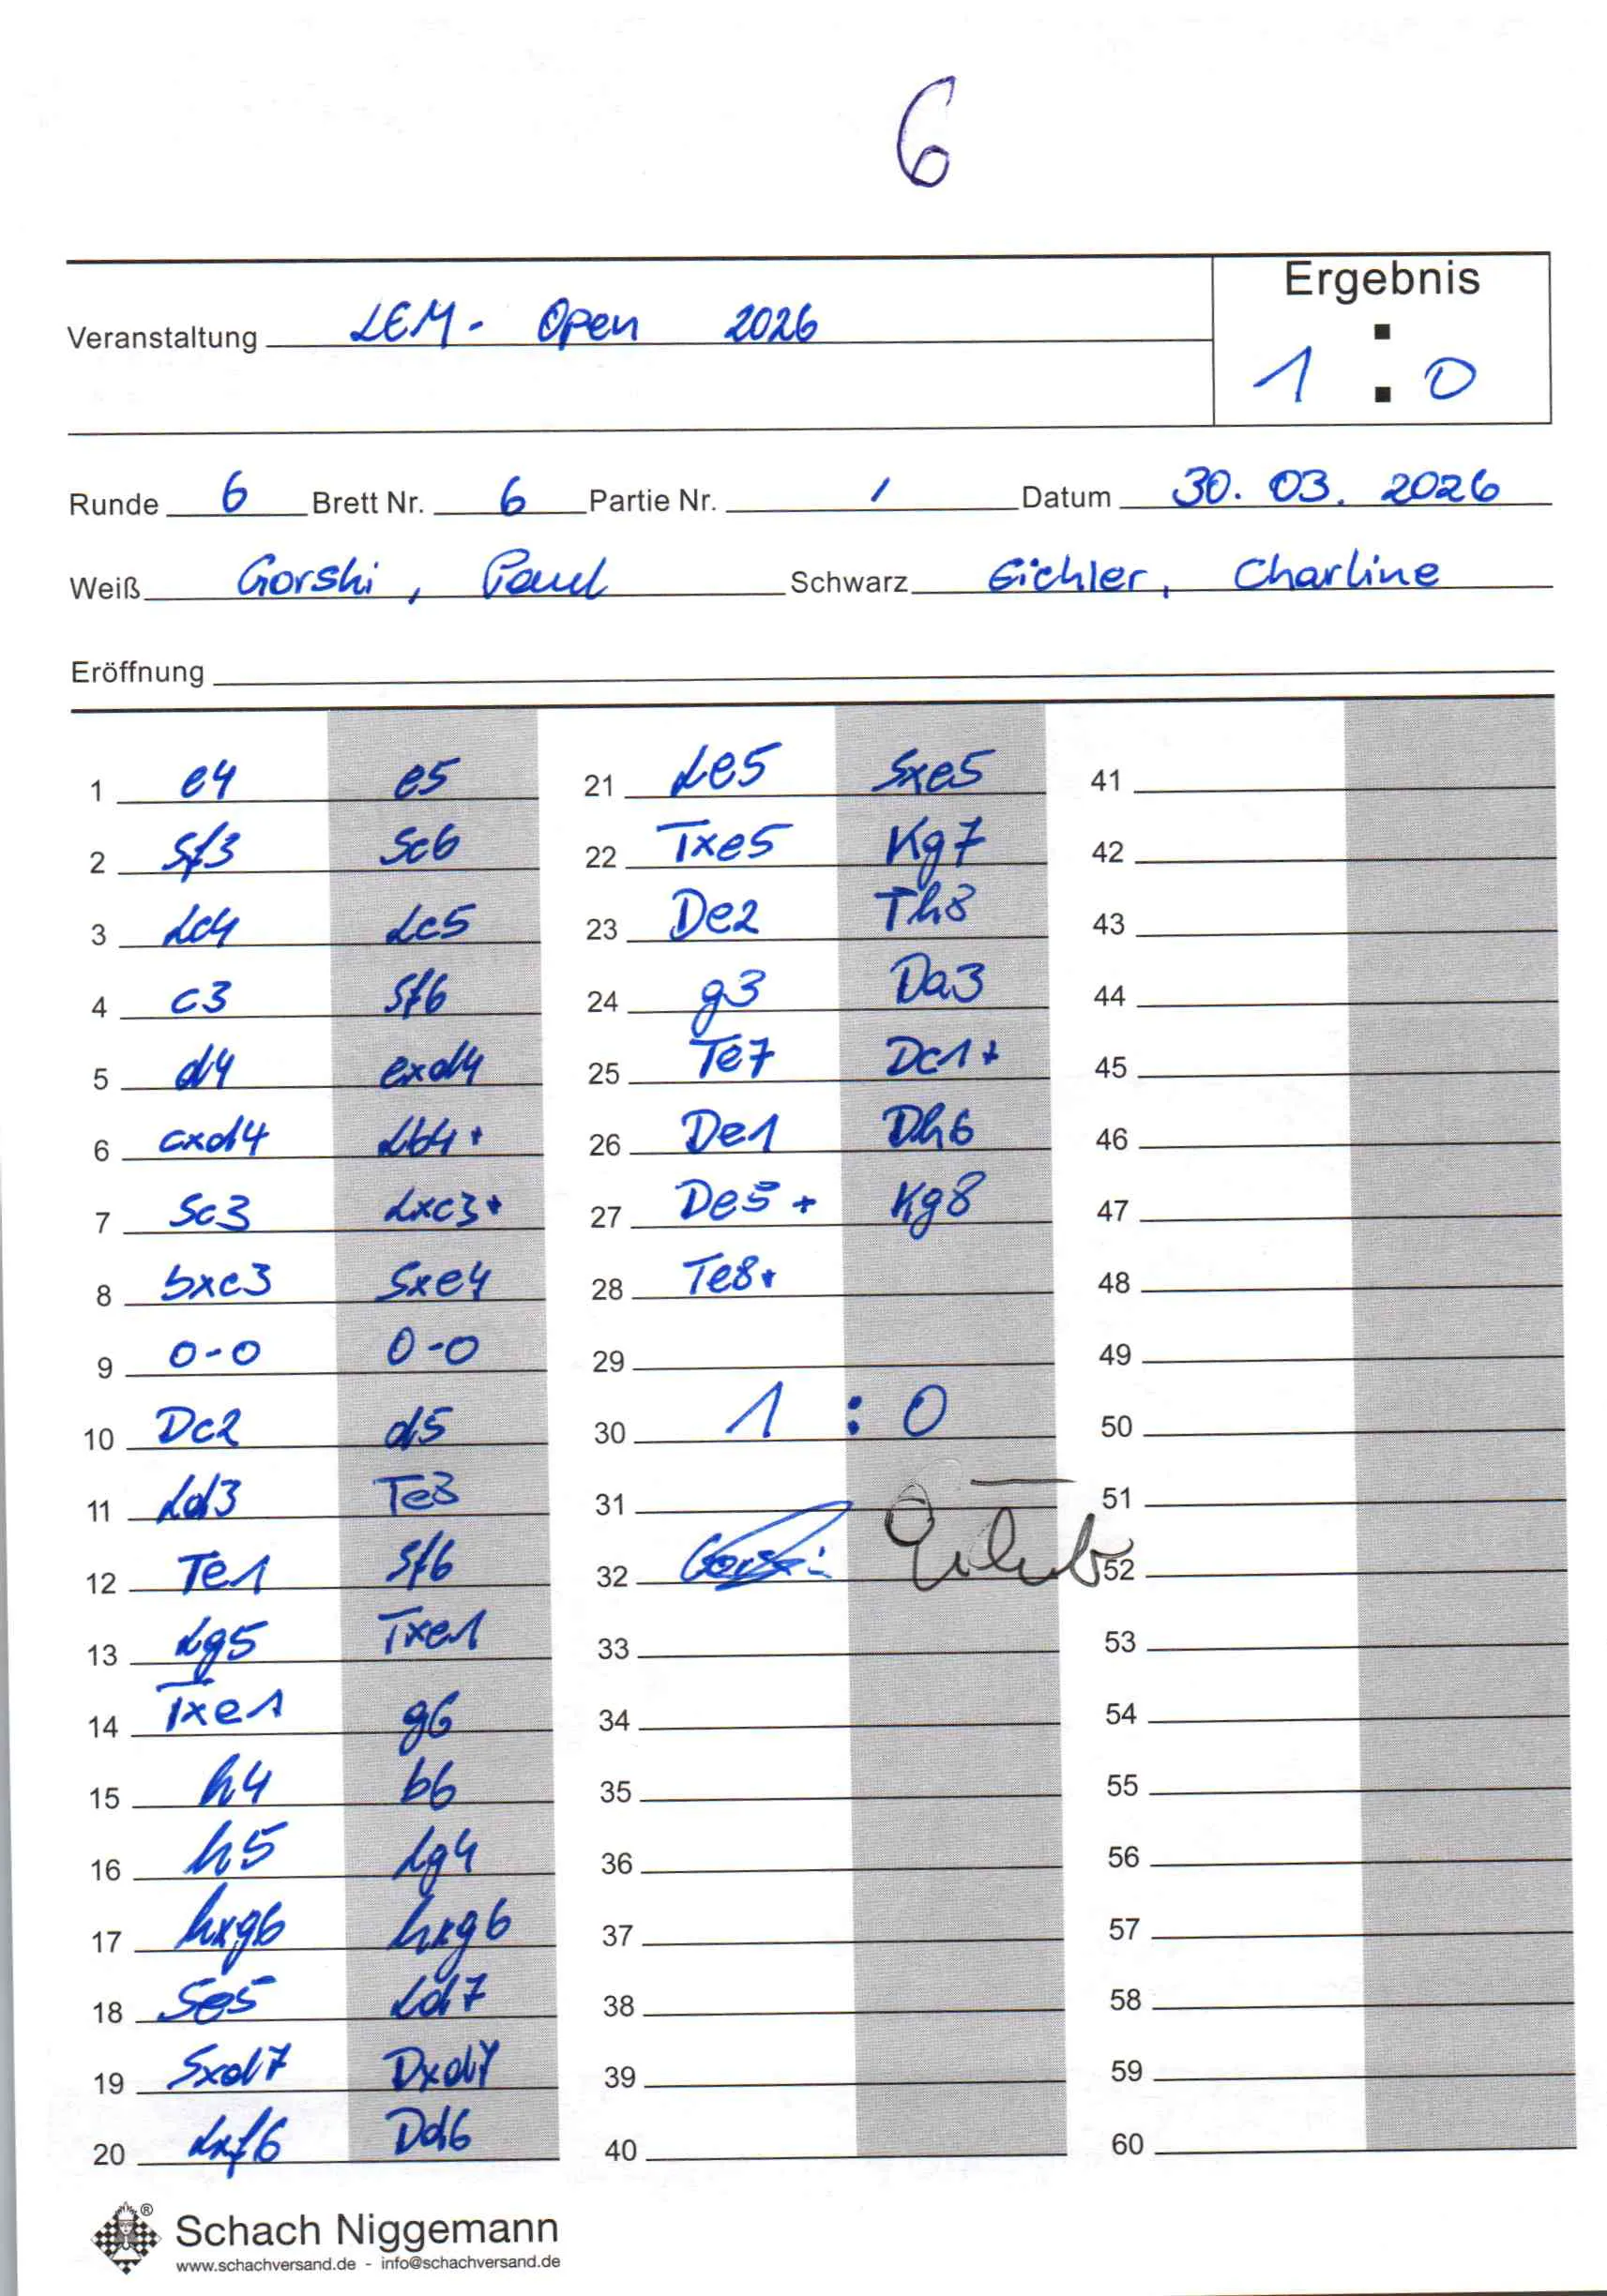 6
Ergebnis
Veranstaltung LEM - Open 2026
1 : 0
Runde 6 Brett Nr. 6 Partie Nr. / Datum 30. 03. 2026
Weiß Gorski, Paul Schwarz Eichler, Charline
Eröffnung
1 e4 e5
2 Sf3 Sc6
3 Lc4 Lc5
4 c3 Sf6
5 d4 exd4
6 cxd4 Lb4+
7 Sc3 Lxc3+
8 bxc3 Sxe4
9 0-0 0-0
10 Dc2 d5
11 Ld3 Te8
12 Te1 Sf6
13 Lg5 Txe1
14 Txe1 g6
15 h4 b6
16 h5 Lg4
17 hxg6 hxg6
18 Se5 Ld7
19 Sxd7 Dxd7
20 Lxf6 Dd6
21 Le5 Sxe5
22 Txe5 Kg7
23 De2 Th8
24 g3 Da3
25 Te7 Dc1+
26 De1 Dh6
27 De5+ Kg8
28 Te8+
29
30 1 : 0
31
32 Gorski
33
34
35
36
37
38
39
40
41
42
43
44
45
46
47
48
49
50
51
52
53
54
55
56
57
58
59
60
® Schach Niggemann
www.schachversand.de - info@schachversand.de